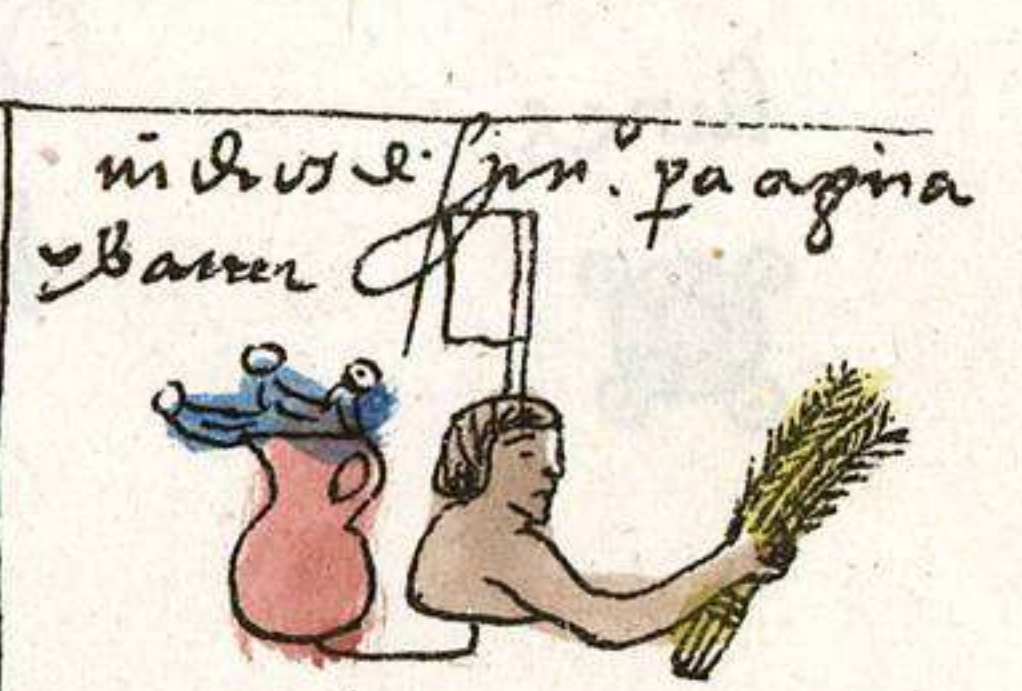 indios de pa agua
y barrer